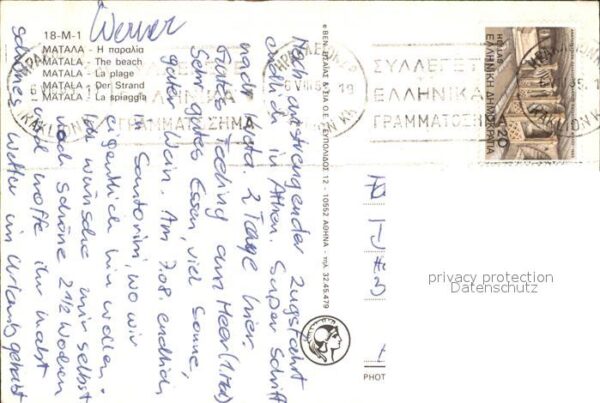 18-M-1
ΜΑΤΑΛΑ - Η παραλία
MATALA - The beach
MATALA - La plage
MATALA - Der Strand
MATALA - La spiaggia
Werner
Nach anstrengender Zugsfahrt
endlich in Athen. Super Schiff
nach Kreta. 2 Tage hier.
Tolles Feeling am Meer
Sehr gutes Essen, viel Sonne,
guter Wein. Am 7.08. endlich
in Santorini, wo wir
eigentlich hin wollen.
Ich wünsche mir selbst
noch schöne 2 1/2 Wochen
und hoffe ihr habt
schönes Wetter im Urlaub gehabt
ΣΥΛΛΕΓΕΤΕ
ΕΛΛΗΝΙΚΑ
ΓΡΑΜΜΑΤΟΣΗΜΑ
ΗΡΑΚΛΕΙΟΝ
IRAKLION
ΕΛΛΗΝΙΚΗ ΔΗΜΟΚΡΑΤΙΑ
HELLAS
20
ΕΥΠΟΛΙΔΟΣ 12 - 10552 ΑΘΗΝΑ - τηλ. 32.45.479
PHOT
privacy protection
Datenschutz